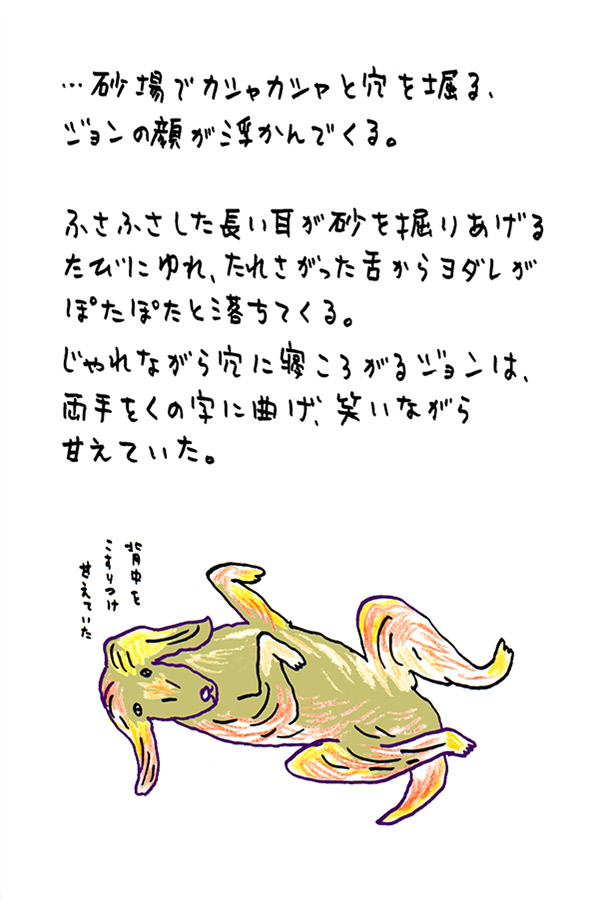 …砂場でカシャカシャと穴を堀る、
ジョンの顔が浮かんでくる。
ふさふさした長い耳が砂を掘りあげる
たびにゆれ、たれさがった舌からヨダレが
ぽたぽたと落ちてくる。
じゃれながら穴に寝ころがるジョンは、
両手をくの字に曲げ、笑いながら
甘えていた。
背中を
こすりつけ
甘えていた